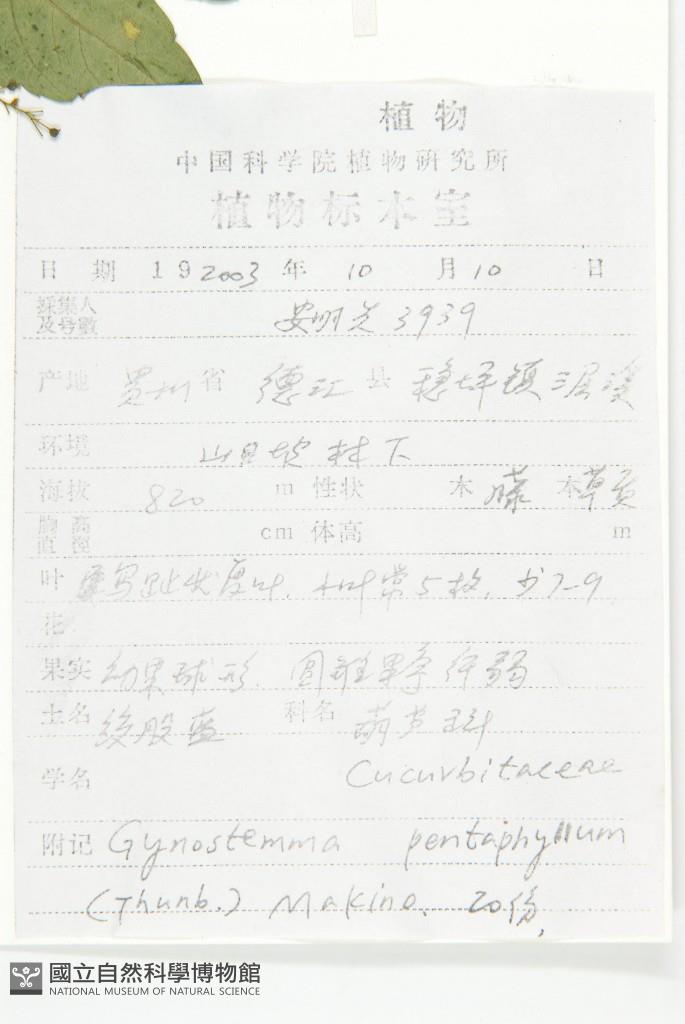 植物
中国科学院植物研究所
植物标本室
日期 19 2003 年 10 月 10 日
採集人及号數 安明先 3939
产地 贵州 省 德江 县 稳坪镇 三
环境 山 坡 林下
海拔 820 m 性状 木 藤 本 草质
胸高直徑 cm 体高 m
叶 鸟趾状复叶, 小叶常5枚, 少7-9
花
果实 幼果球形, 圆锥果序纤弱
土名 绞股蓝 科名 葫芦科
学名 Cucurbitaceae
附记 Gynostemma pentaphyllum
(Thunb.) Makino. 20份,
國立自然科學博物館
NATIONAL MUSEUM OF NATURAL SCIENCE